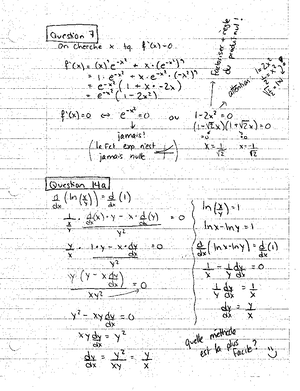 Question 7
On cherche x tq f'(x)=0.
f'(x) = (x)' e^{-x²} + x·(e^{-x²})'
= 1·e^{-x²} + x·e^{-x²}·(-x²)'
= e^{-x²}(1 + x·-2x)
= e^{-x²}(1-2x²)
factoriser + règle du produit nul!
f'(x)=0 ⇔ e^{-x²}=0 ou 1-2x²=0
jamais!
(la fct exp n'est jamais nulle)
(1-√2x)(1+√2x)=0
x=1/√2 x=-1/√2
attention:
Question 14a
d/dx (ln(x/y)) = d/dx(1)
1/(x/y) · (d/dx(x)·y - x·d/dx(y))/y² = 0
y/x · (1·y - x·dy/dx)/y² = 0
y(y - x dy/dx)/xy² = 0
y² - xy dy/dx = 0
xy dy/dx = y²
dy/dx = y²/xy = y/x
ln(x/y) = 1
ln x - ln y = 1
d/dx (ln x - ln y) = d/dx(1)
1/x - 1/y dy/dx = 0
1/y dy/dx = 1/x
dy/dx = y/x
quelle méthode
est la plus
facile? :)